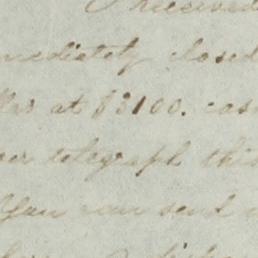 I received
mediately closed
at $3100. cas
telegraph this
you can send